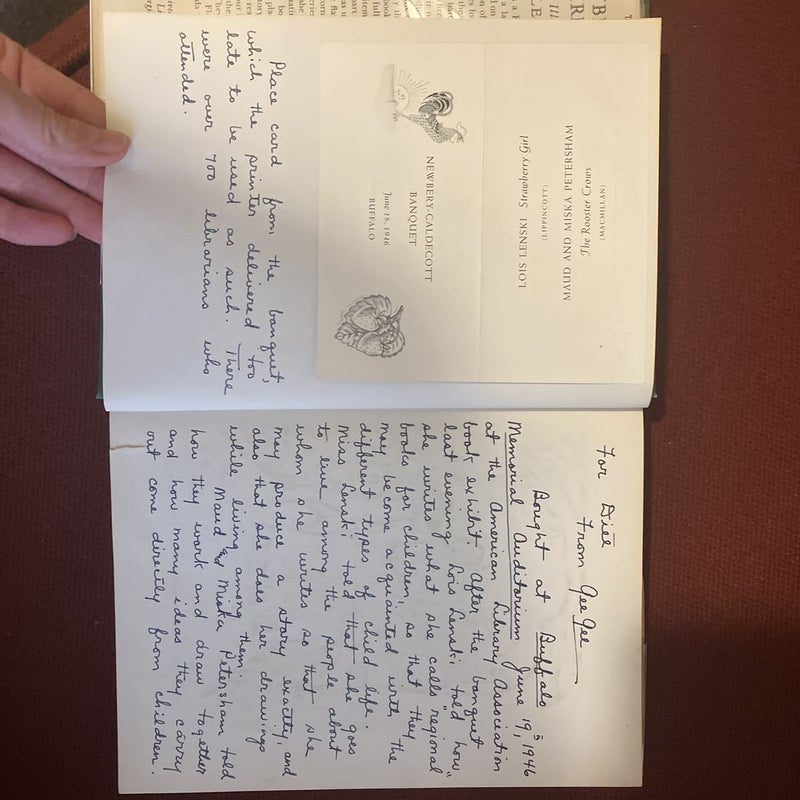 LOIS LENSKI Strawberry Girl
(LIPPINCOTT)
MAUD AND MISKA PETERSHAM
The Rooster Crows
(MACMILLAN)
NEWBERY-CALDECOTT
BANQUET
June 18, 1946
BUFFALO
Place card from the banquet,
which the printer delivered too
late to be used as such. There
were over 700 librarians who
attended.
For
From Gee Gee
Bought at Buffalo
Memorial Auditorium June 19, 1946
at the American Library Association
book exhibit. After the banquet
last evening Lois Lenski told how
she writes what she calls "regional"
books for children, so that they
may become acquainted with the
different types of child life.
Miss Lenski told that she goes
to live among the people about
whom she writes so that she
may produce a story exactly, and
also that she does her drawings
while living among them.
Maud and Miska Petersham told
how they work and draw together
and how many ideas they carry
out come directly from children.